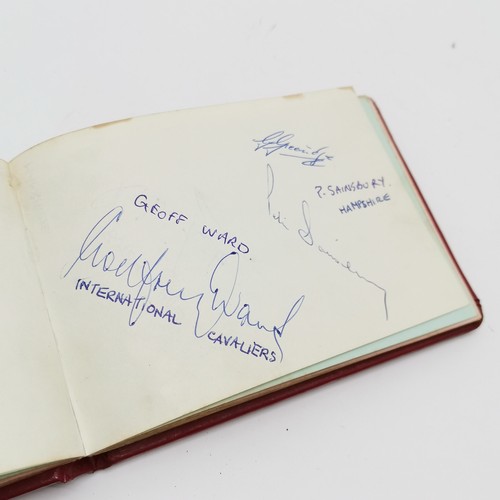 G Greenidge
P. SAINSBURY.
HAMPSHIRE
Peter Sainsbury
GEOFF WARD.
Geoffrey Ward
INTERNATIONAL
CAVALIERS